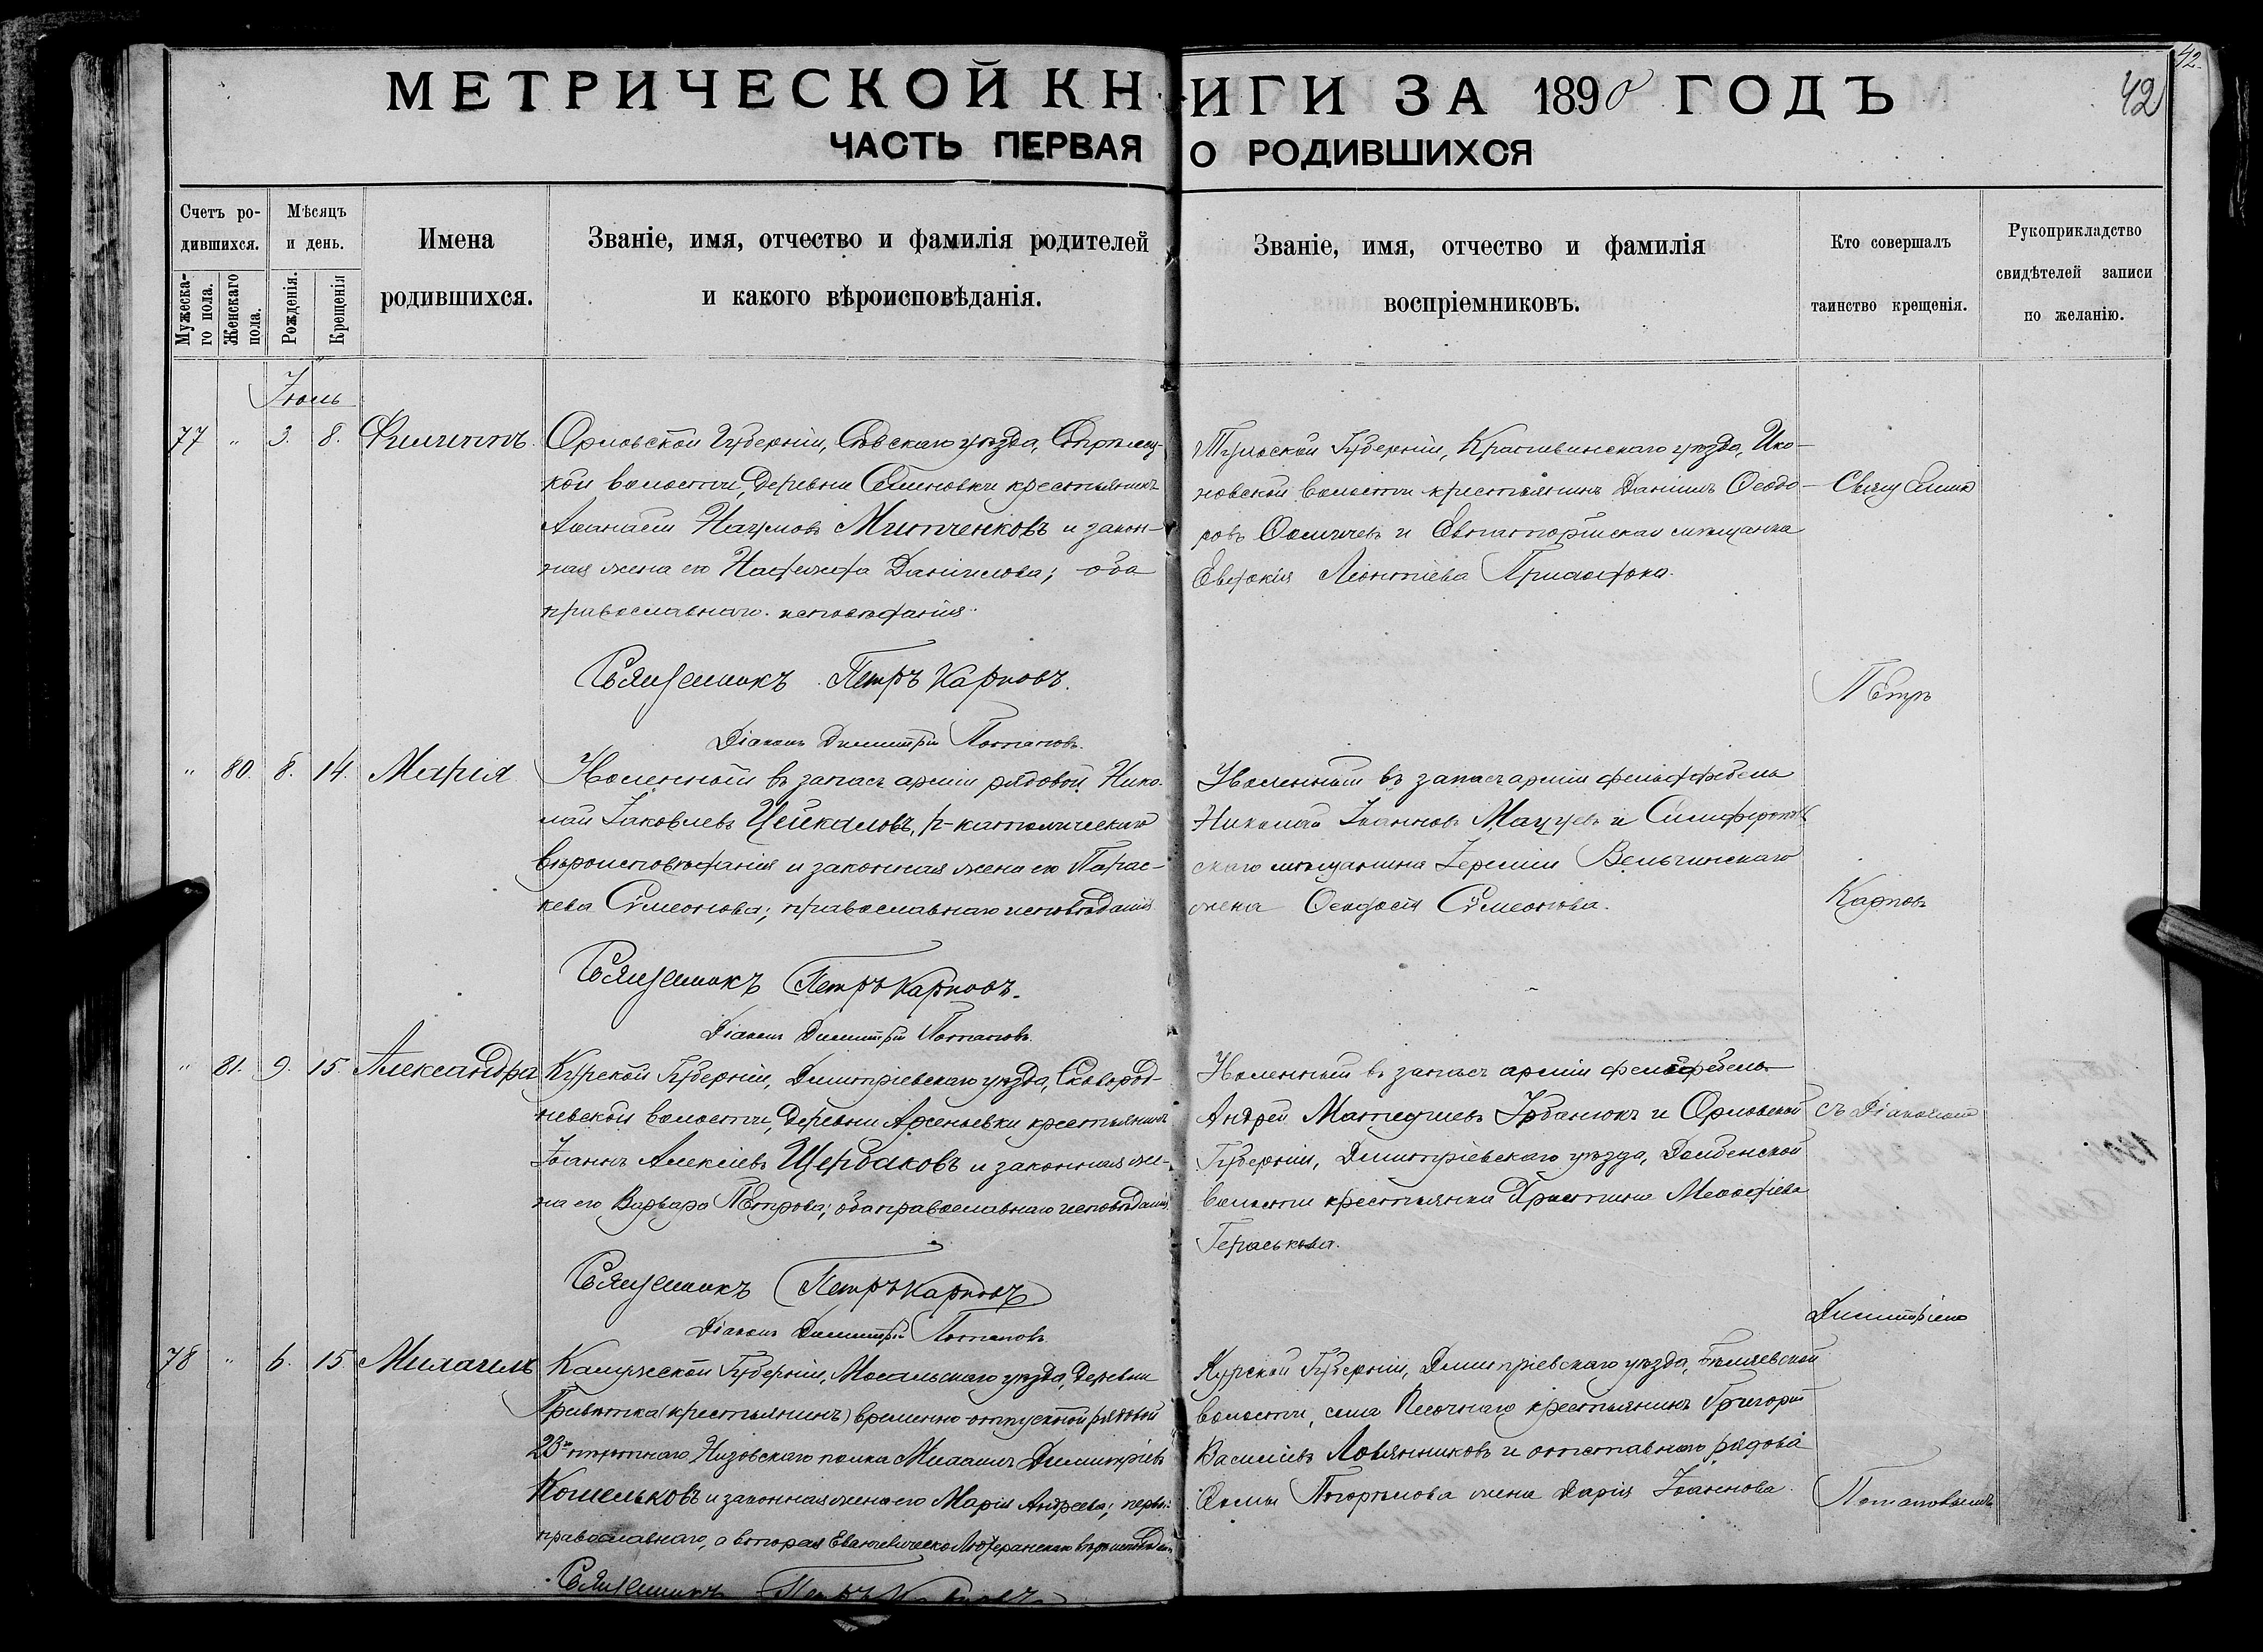 42.
42
МЕТРИЧЕСКОЙ КНИГИ ЗА 1890 ГОДЪ
ЧАСТЬ ПЕРВАЯ О РОДИВШИХСЯ
Счетъ ро-
дившихся.
Мужеска-
го пола.
Женскаго
пола.
Мѣсяцъ
и день.
Рожденія.
Крещенія
Имена
родившихся.
Званіе, имя, отчество и фамилія родителей
и какого вѣроисповѣданія.
Званіе, имя, отчество и фамилія
воспріемниковъ.
Кто совершалъ
таинство крещенія.
Рукоприкладство
свидѣтелей записи
по желанію.
Іюль
77 " 3. 8. Филиппъ.
Орловской Губерніи, Сѣвскаго уѣзда, Стрѣлец-
кой волости, деревни Семеновки крестьянинъ
Аѳанасій Наумовъ Митченковъ и закон-
ная жена его Надежда Даніилова; оба
православнаго исповѣданія.
Священникъ Петръ Карповъ.
Діаконъ Димитрій Потаповъ.
Тульской Губерніи, Крапивинскаго уѣзда,
новской волости крестьянинъ Даніилъ Ѳеодо-
ровъ и Евпаторійская мѣщанка
Евдокія Леонтіева
" 80. 8. 14. Марія
Уволенный въ запасъ арміи рядовой Нико-
лай Іаковлевъ Цейкаловъ, р-католическаго
вѣроисповѣданія и законная жена его Парас-
кева Сѵмеонова; православнаго исповѣданія
Священникъ Петръ Карповъ.
Діаконъ Димитрій Потаповъ.
Уволенный въ запасъ арміи фельдфебель
Николай Іоанновъ Мацуевъ и Симферополь-
скаго мѣщанина Іереміи Вельчинскаго
жена Ѳеодосія Сѵмеонова.
" 81. 9. 15. Александра
Курской Губерніи, Димитріевскаго уѣзда, Сковород-
невской волости, деревни Арсеньевки крестьянинъ
Іоаннъ Алексіевъ Щербаковъ и законная же-
на его Варвара Петрова; оба православнаго исповѣданія
Священникъ Петръ Карповъ
Діаконъ Димитрій Потаповъ.
Уволенный въ запасъ арміи фельдфебель
Андрей Матѳіевъ Урбанюкъ и Орловской
Губерніи, Димитріевскаго уѣзда,
волости крестьянка Христина Меѳодіева
Гераськова.
78 " 6. 15 Михаилъ
Калужской Губерніи, Мосальскаго уѣзда, деревни
(крестьянинъ) временно-отпускной рядовой
23го пѣхотнаго Низовскаго полка Михаилъ Димитріевъ
Кошельковъ и законная жена его Марія Андреева; первый
православнаго, а вторая Евангелическо-Лютеранскаго вѣроисповѣдан.
Священникъ Петръ Карповъ
Курской Губерніи, Димитріевскаго уѣзда, Бѣляевской
волости, села Песочнаго крестьянинъ Григорій
Василіевъ Ловянниковъ и отставнаго рядова
Ѳомы Погорѣлова жена Дарія Іоаннова.
Священникъ
Петръ
Карповъ
съ Діакономъ
Димитріемъ
Потаповымъ